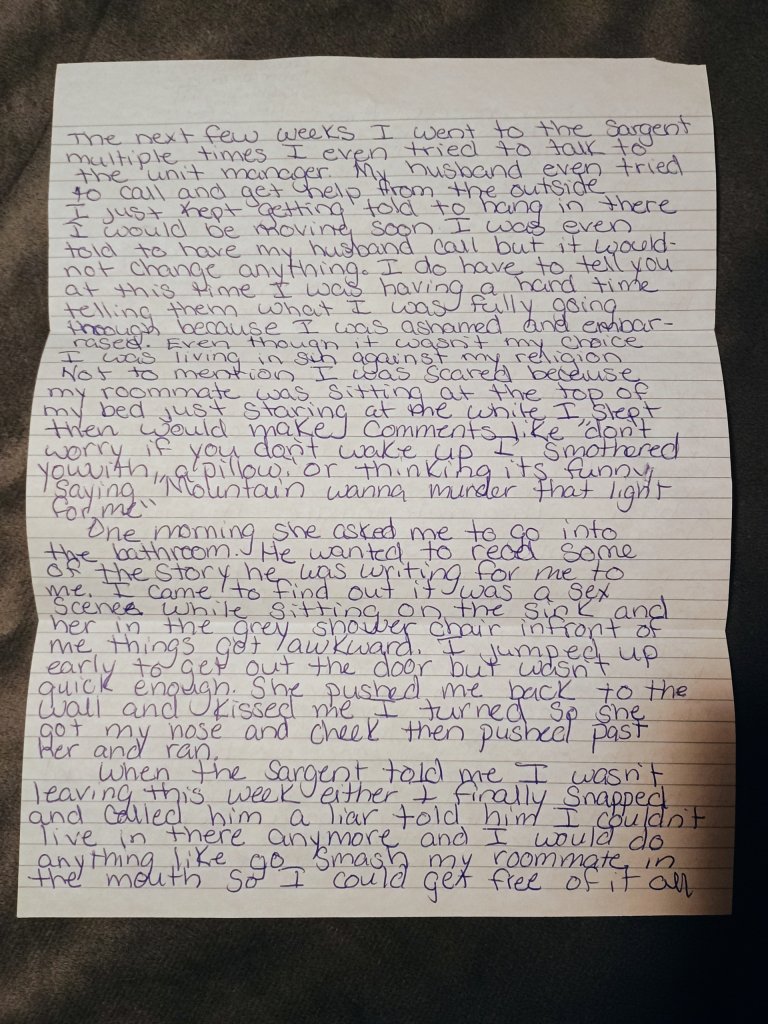 The next few weeks I went to the Sargent
multiple times I even tried to talk to
the unit manager My husband even tried
to call and get help from the outside
I just kept getting told to hang in there
I would be moving soon I was even
told to have my husband call but it would-
not change anything. I do have to tell you
at this time I was having a hard time
telling them what I was fully going
through because I was ashamed and embar-
rased. Even though it wasn't my choice
I was living in sin against my religion
Not to mention I was scared because
my roommate was sitting at the top of
my bed just staring at me while I slept
then would make comments like "don't
worry if you don't wake up I smothered
you with a pillow. or thinking its funny
saying "Mountain wanna murder that light
for me"
One morning she asked me to go into
the bathroom. He wanted to read some
of the story he was writing for me to
me. I came to find out it was a sex
scene while sitting on the sink and
her in the grey shower chair infront of
me things got awkward. I jumped up
early to get out the door but wasn't
quick enough. She pushed me back to the
wall and kissed me I turned so she
got my nose and cheek then pushed past
her and ran.
When the Sargent told me I wasn't
leaving this week either I finally snapped
and called him a liar told him I couldn't
live in there anymore and I would do
anything like go smash my roommate in
the mouth so I could get free of it all